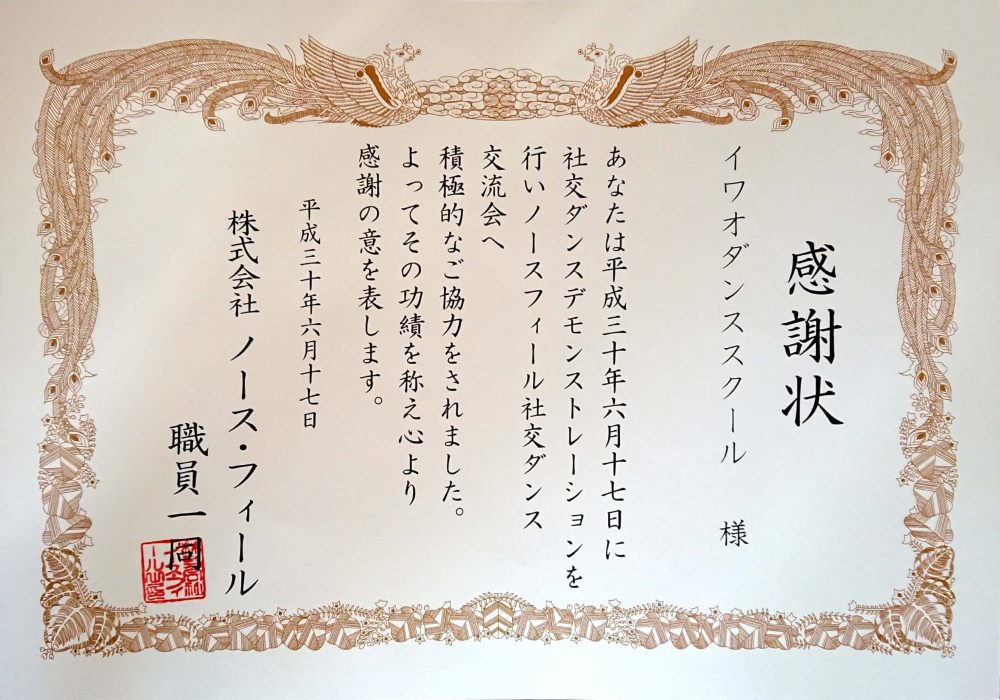 感謝状
イワオダンススクール 様
あなたは平成三十年六月十七日に
社交ダンスデモンストレーションを
行いノースフィール社交ダンス
交流会へ
積極的なご協力をされました。
よってその功績を称え心より
感謝の意を表します。
平成三十年六月十七日
株式会社 ノース・フィール
職員一同